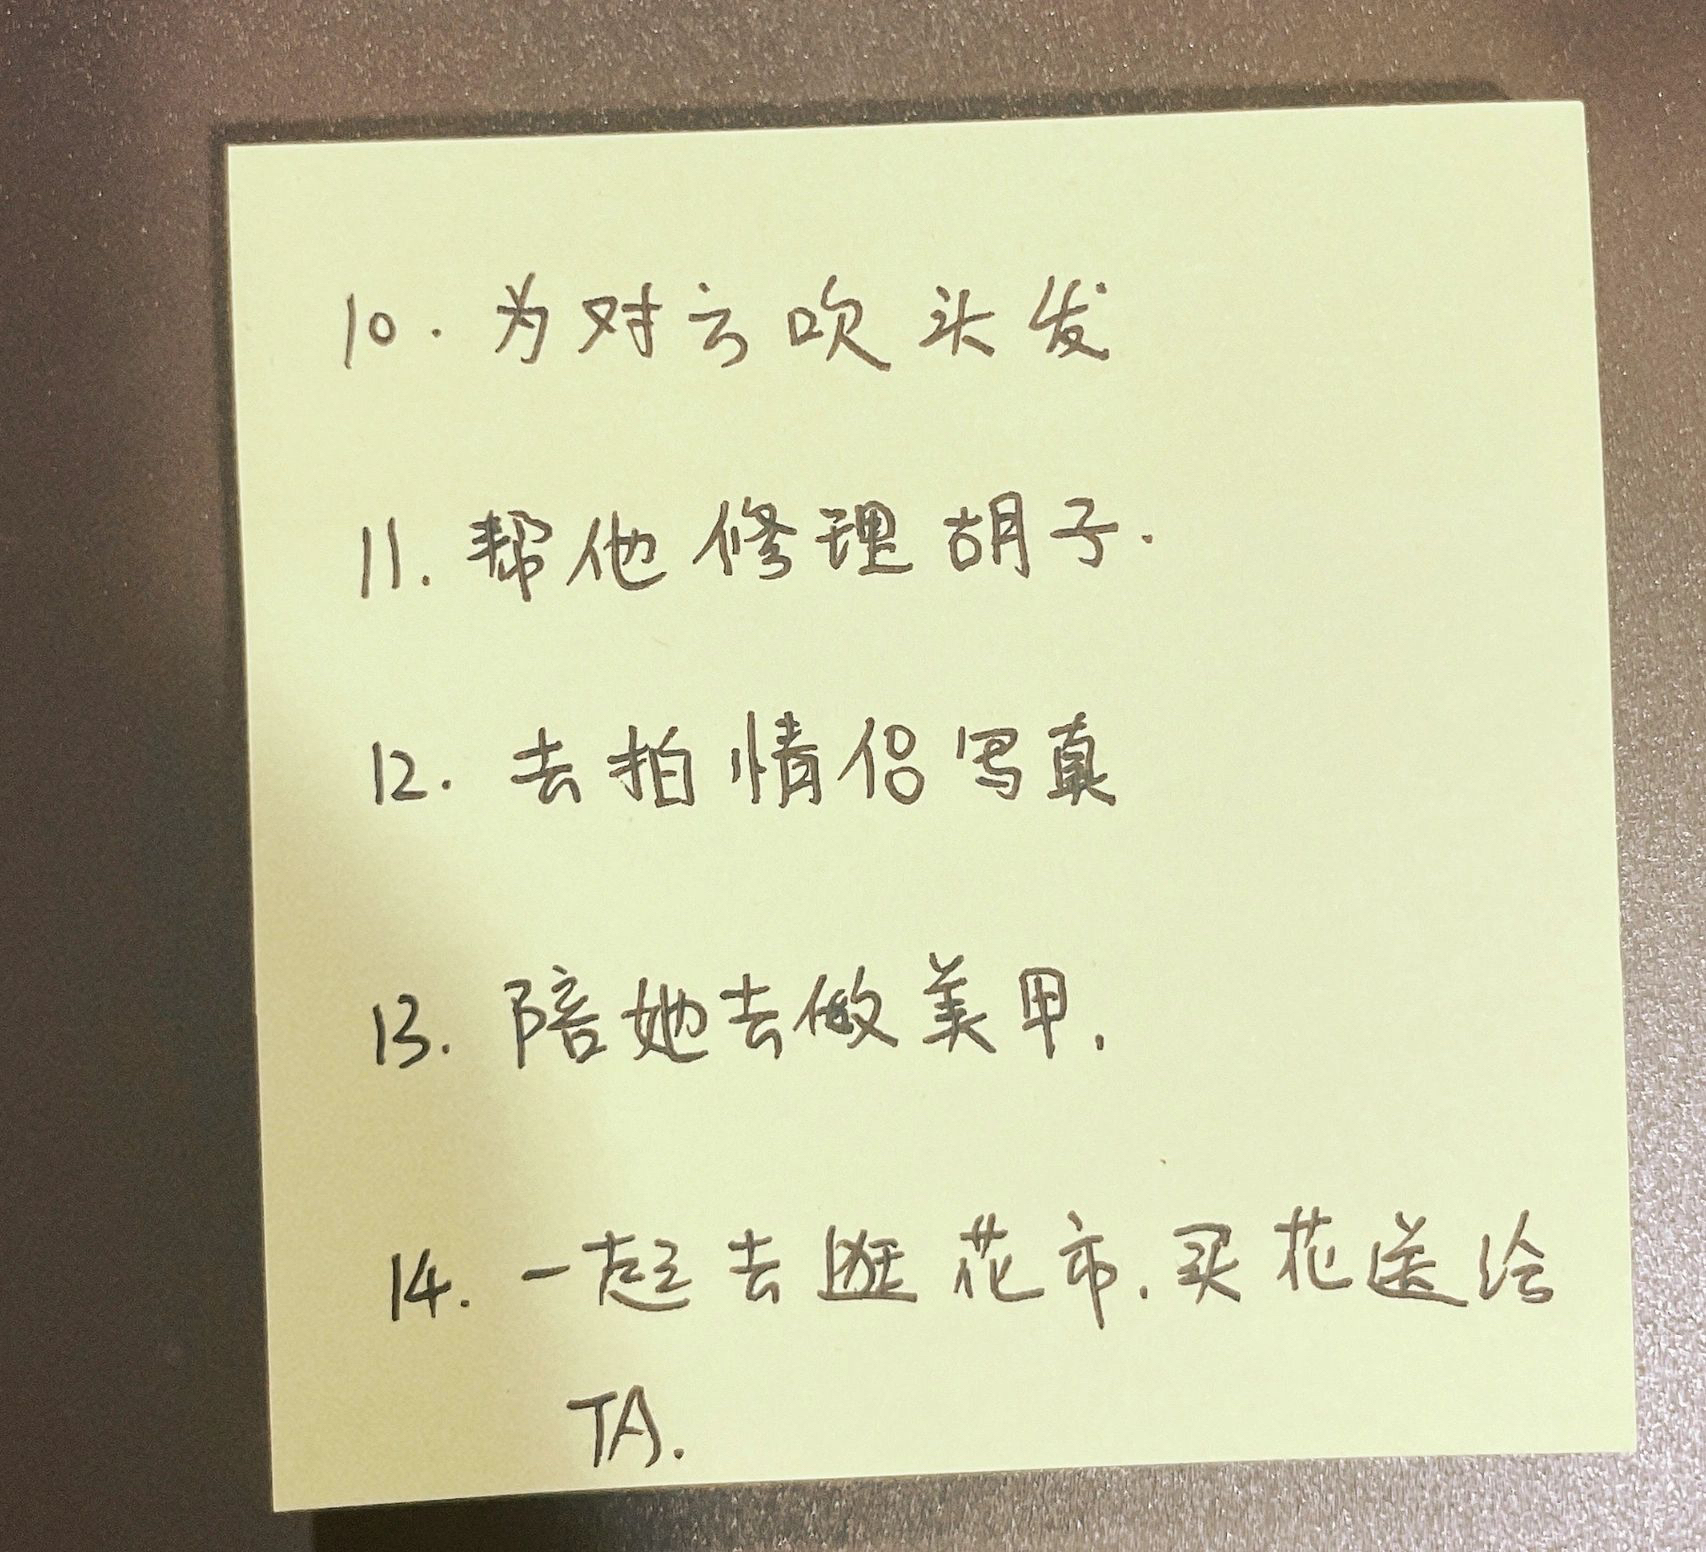 10. 为对方吹头发
11. 帮他修理胡子.
12. 去拍情侣写真
13. 陪她去做美甲.
14. 一起去逛花市.买花送给
TA.